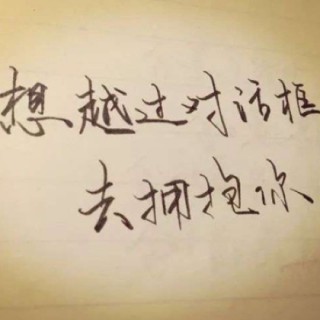 想越过对话框
去拥抱你